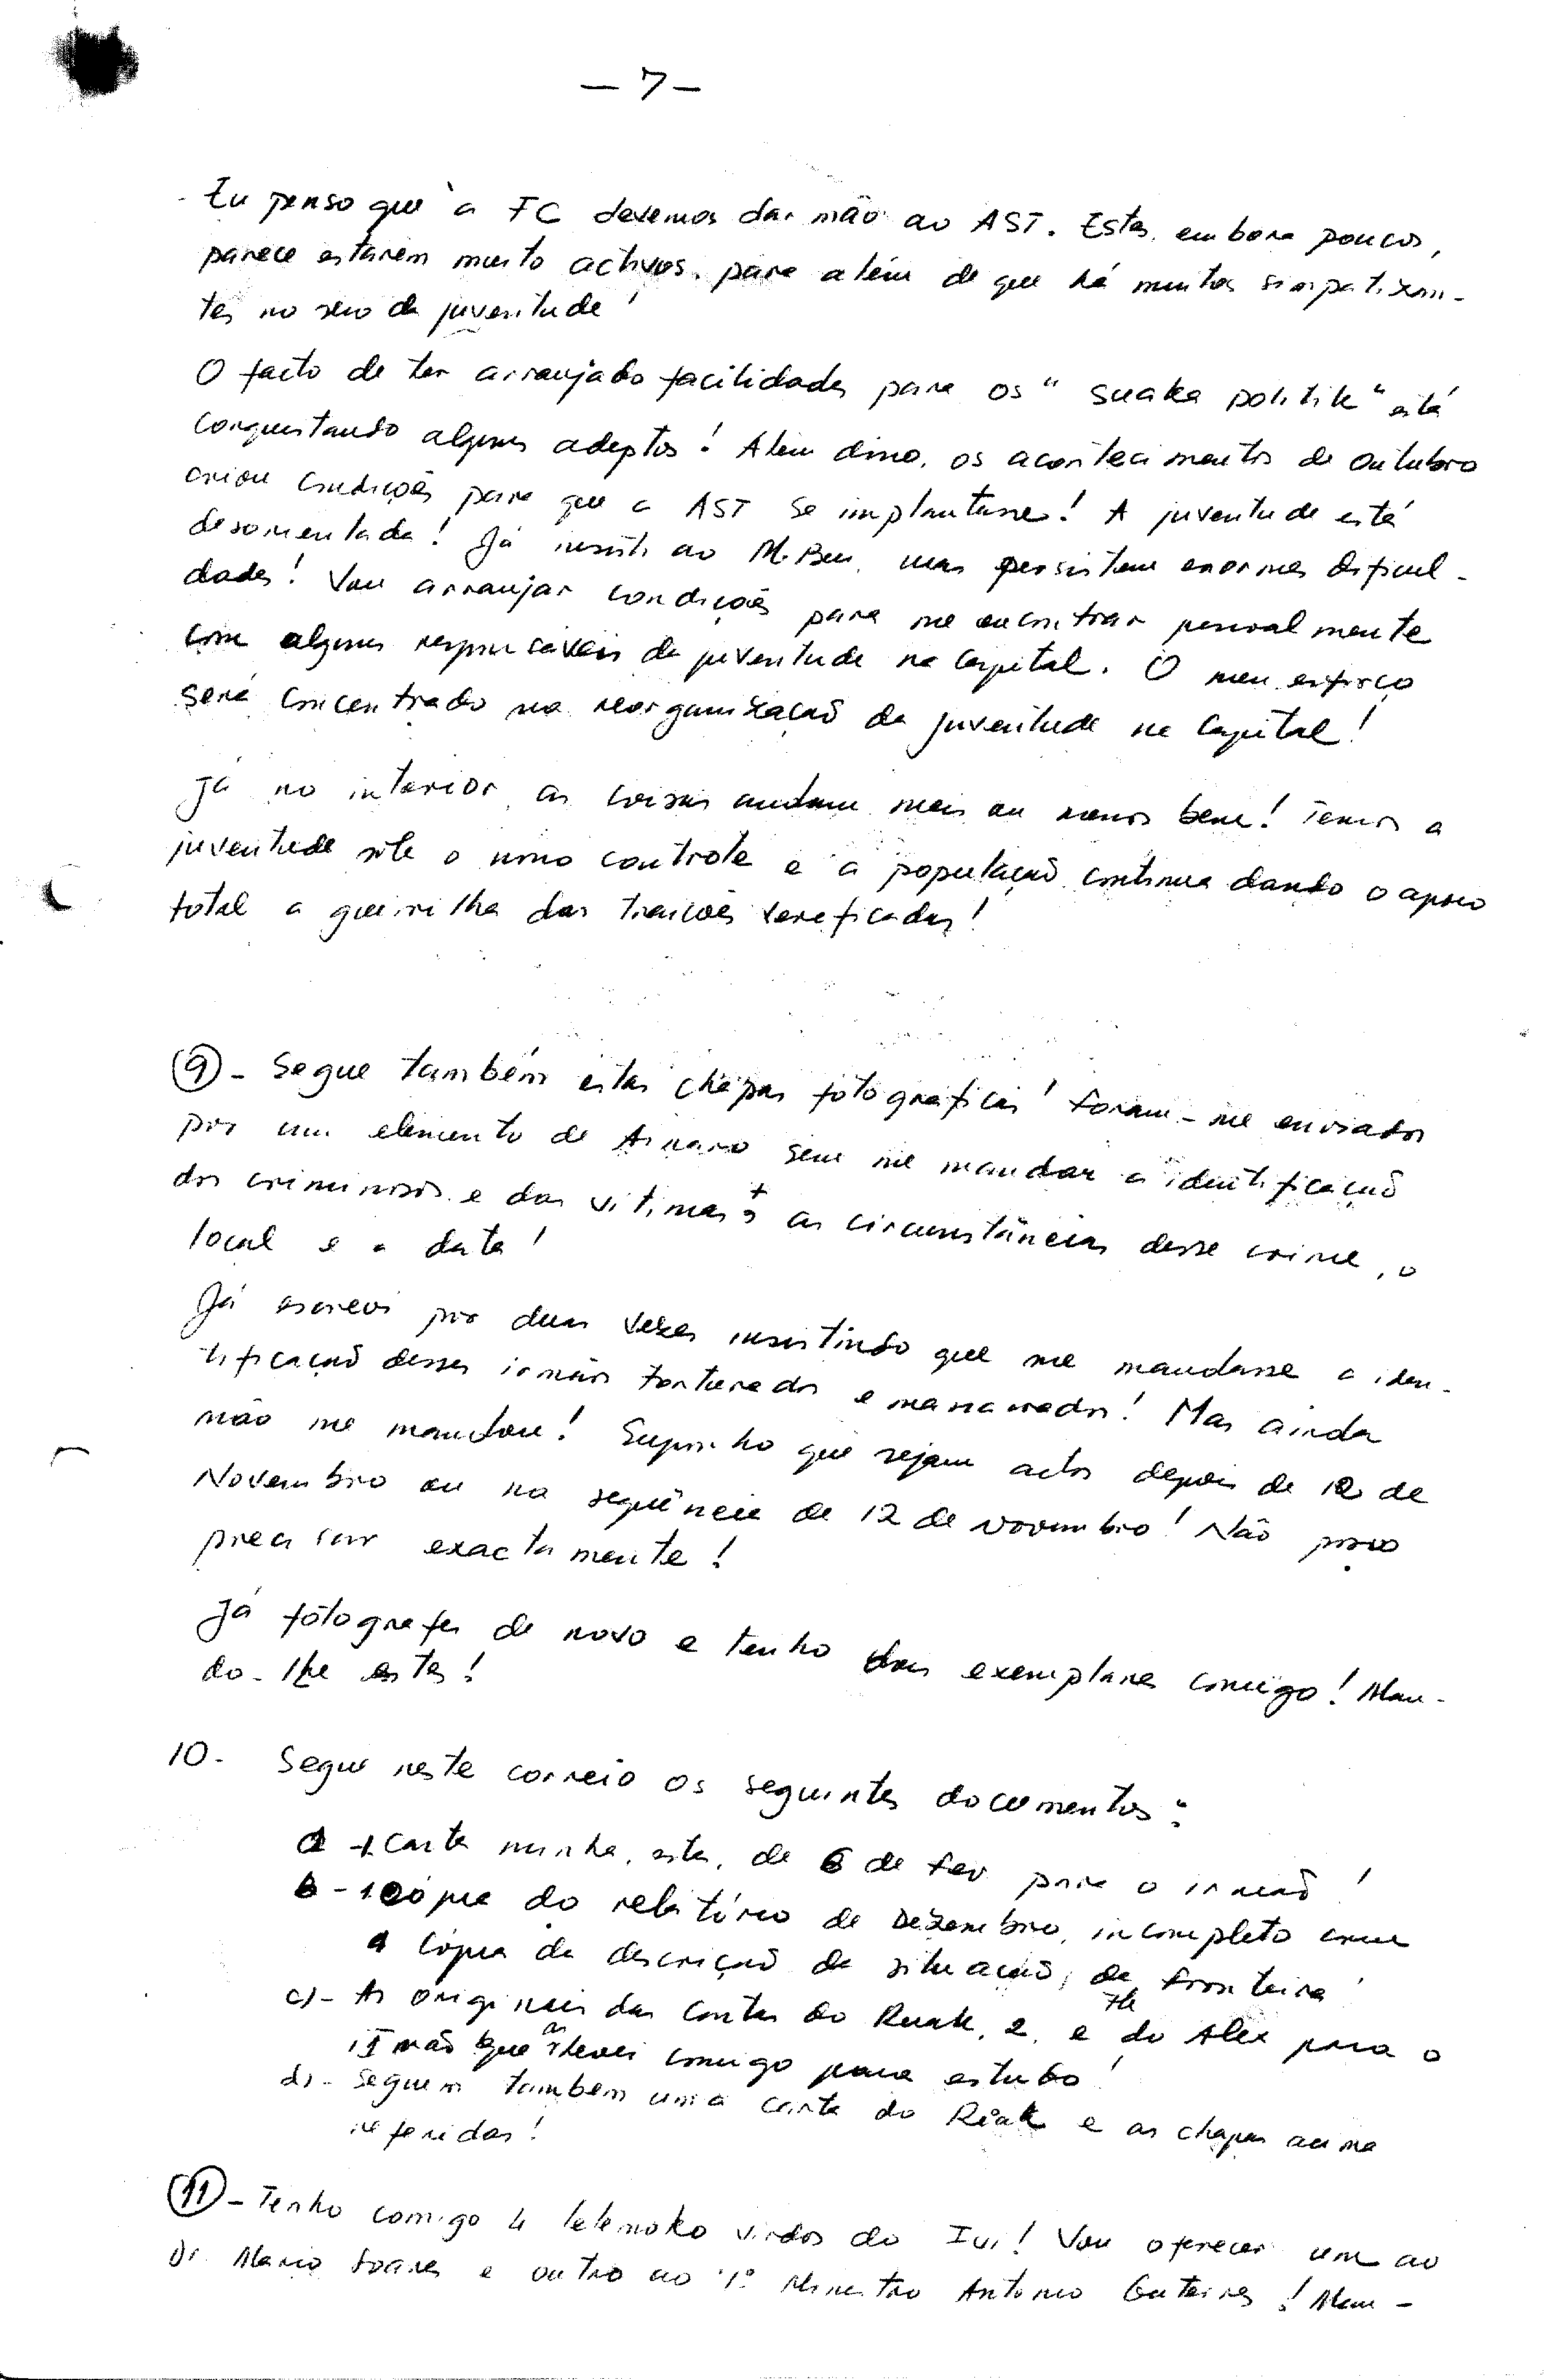 - 7 -
Eu penso que a FC devemos dar mão ao AST. Estes, embora poucos,
parece estarem muito activos, para além de que há muitos simpatizan-
tes no seio da juventude!
O facto de ter arranjado facilidades para os "suaka politik" está
conquistando alguns adeptos! Além disso, os acontecimentos de Outubro
criou condições para que a AST se implantasse! A juventude está
desorientada! Já insisti ao M. Ben, mas persistem enormes dificul-
dades! Vou arranjar condições para me encontrar pessoalmente
com alguns responsáveis da juventude na Capital. O meu esforço
será concentrado na reorganização da juventude na Capital!
Já no interior, as coisas andam mais ou menos bem! Temos a
juventude sob o nosso controle e a população continua dando o apoio
total a guerrilha das traições verificadas!
(9) - Segue também estas chapas fotográficas! Foram-me enviados
por um elemento de Ainaro sem me mandar a identificação
dos criminosos e das vítimas + as circunstâncias desse crime, o
local e a data!
Já escrevi por duas vezes insistindo que me mandasse a iden-
tificação desses irmãos torturados e massacrados! Mas ainda
não me mandou! Suponho que sejam actos depois de 12 de
Novembro ou na sequência de 12 de Novembro! Não posso
precisar exactamente!
Já fotografei de novo e tenho dois exemplares comigo! Man-
do-lhe estes!
10. Segue neste correio os seguintes documentos:
a - 1 Carta minha, esta, de 6 de Fev para o irmão!
b - 1 cópia do relatório de Dezembro, incompleto com
a cópia da descrição da situação, da fronteira!
c) - As originais das cartas do Ruak, 2, e 7h do Alex para o
irmão que as levei comigo para estudo!
d) - Seguem também uma carta do Riak e as chapas acima
referidas!
(11) - Tenho comigo 4 telemoko vindos do Ivi! Vou oferecer um ao
Dr. Mario Soares e outro ao 1º Ministro Antonio Guterres! Man-